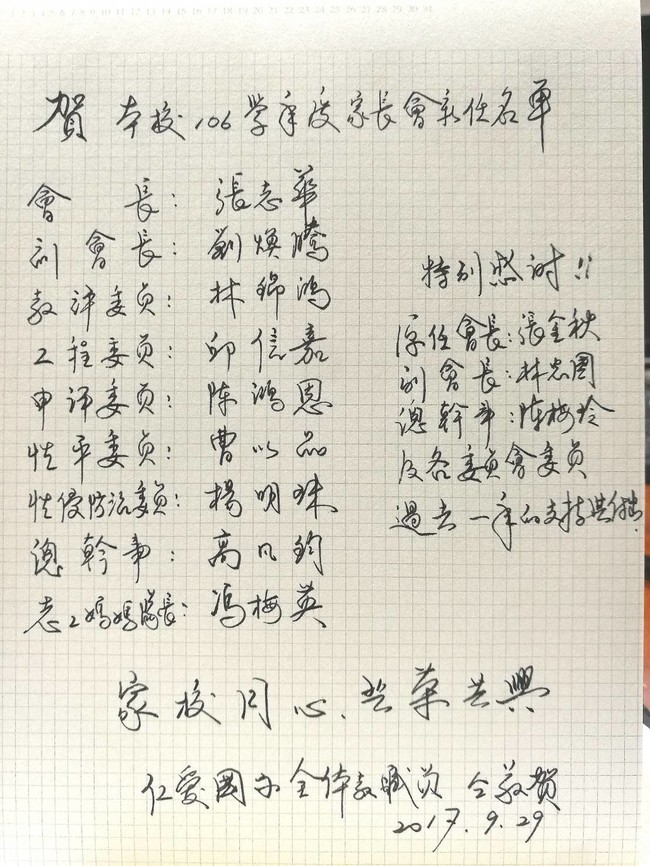 賀 本校106学年度家长會新任名單
會長：張志華
副會長：劉煥騰
教評委员：林錦鴻
工程委员：邱信嘉
申评委员：陈鴻恩
性平委员：曹以品
性侵防治委員：楊明珠
總幹事：高凡鈞
志工媽媽隊長：馮梅英
特別感謝!!
原任會長：張金秋
副會長：林忠國
總幹事：陈梅玲
及各委員會委員
過去一年的支持與付出.
家校同心、共荣共興
仁爱國小全体教職员 仝敬賀
2017.9.29